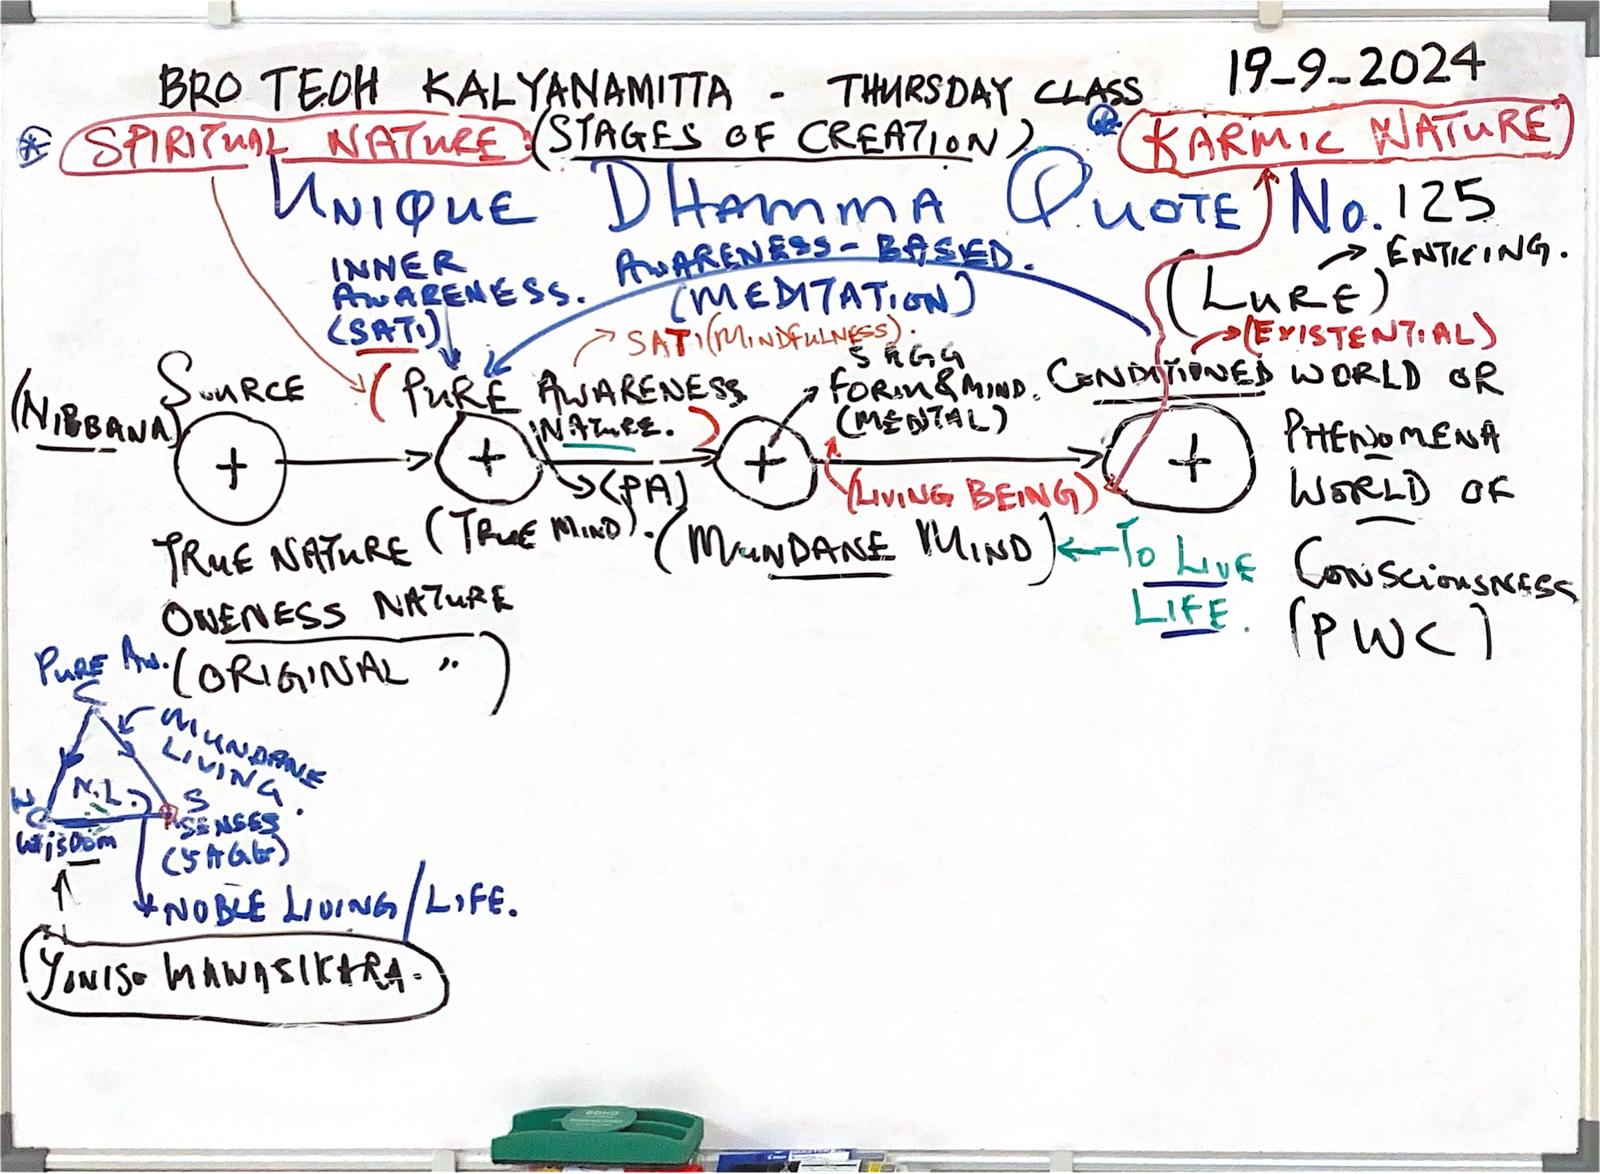 BRO TEOH KALYANAMITTA - THURSDAY CLASS 19-9-2024
SPIRITUAL NATURE : (STAGES OF CREATION) KARMIC NATURE
UNIQUE DHAMMA QUOTE No. 125
INNER AWARENESS. (SATI)
AWARENESS-BASED.
(MEDITATION)
(LURE) → ENTICING.
→ SATI (MINDFULNESS).
→ (EXISTENTIAL)
(NIBBANA)
SOURCE
(PURE AWARENESS
NATURE.)
5 AGG
FORM & MIND.
(MENTAL)
CONDITIONED WORLD OR
PHENOMENA
WORLD OF
CONSCIOUSNESS
(PWC)
+ + + +
→ (PA)
(LIVING BEING)
TRUE NATURE
(TRUE MIND).
(MUNDANE MIND) ← TO LIVE
LIFE.
ONENESS NATURE
(ORIGINAL ")
PURE AW.
C
MUNDANE
LIVING.
N.L.
W
WISDOM
S
SENSES
(5 AGG)
NOBLE LIVING/LIFE.
YONISO MANASIKARA.